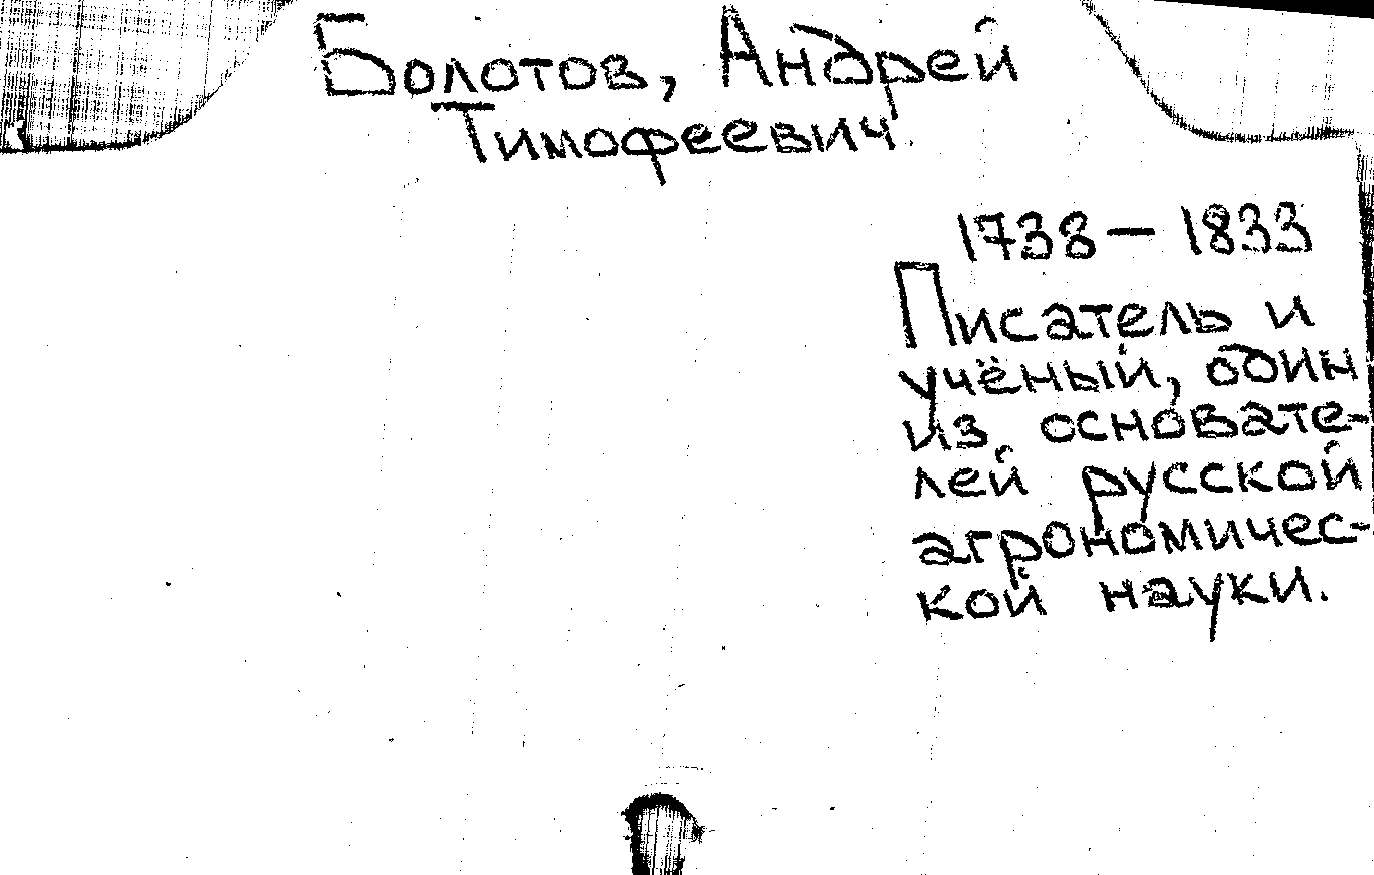 Болотов, Андрей
Тимофеевич
1738 — 1833
Писатель и
учёный, один
из основате-
лей русской
агрономичес-
кой науки.